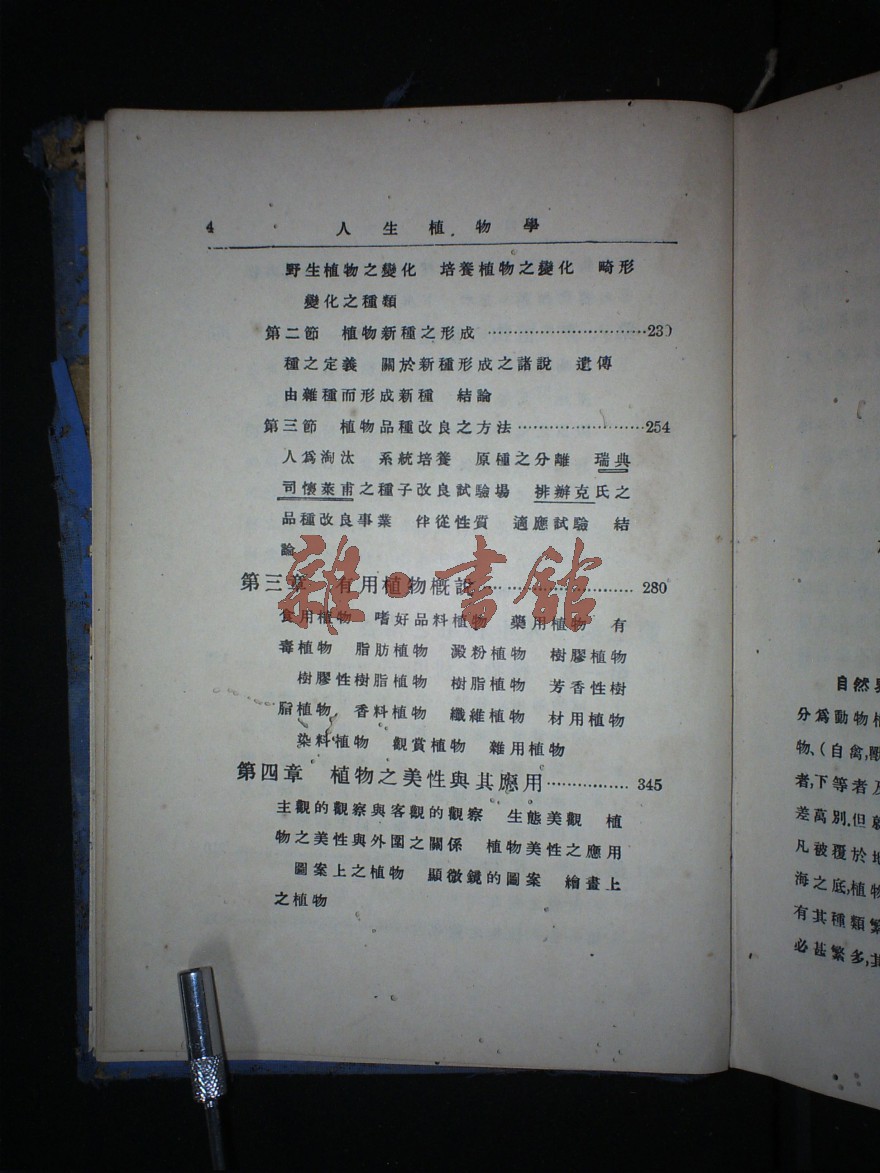 4　人生植物學
野生植物之變化　培養植物之變化　畸形
變化之種類
第二節　植物新種之形成…………………………230
種之定義　關於新種形成之諸說　遺傳
由雜種而形成新種　結論
第三節　植物品種改良之方法……………………254
人爲淘汰　系統培養　原種之分離　瑞典
司懷萊甫之種子改良試驗場　排辦克氏之
品種改良事業　伴從性質　適應試驗　結
論
第三章　有用植物概說…………………………280
食用植物　嗜好品料植物　藥用植物　有
毒植物　脂肪植物　澱粉植物　樹膠植物
樹膠性樹脂植物　樹脂植物　芳香性樹
脂植物　香料植物　纖維植物　材用植物
染料植物　觀賞植物　雜用植物
第四章　植物之美性與其應用………………345
主觀的觀察與客觀的觀察　生態美觀　植
物之美性與外圍之關係　植物美性之應用
圖案上之植物　顯微鏡的圖案　繪畫上
之植物
雜·書館
自然界
分爲動物植
物、(自禽,獸
者,下等者及
差萬別.但就
凡被覆於地
海之底,植物
有其種類繁
必甚繁多,其